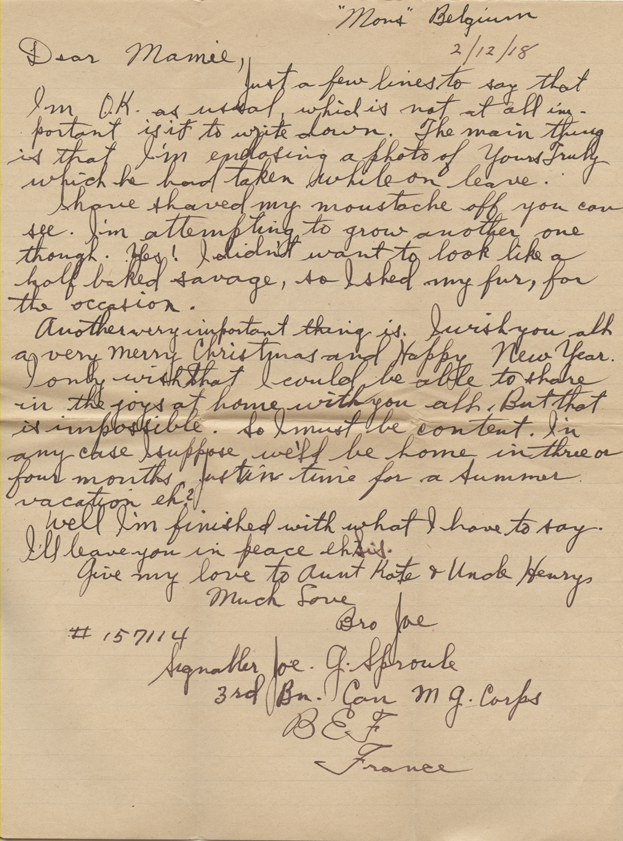 "Mons" Belgium
2/12/18
Dear Mamie,
Just a few lines to say that
I'm O.K. as usual, which is not at all im-
portant is it to write down. The main thing
is that I'm enclosing a photo of Yours Truly
which he had taken while on leave.
I have shaved my moustache off you can
see. I'm attempting to grow another one
though. Yes! I didn't want to look like a
half baked savage, so I shed my fur, for
the occasion.
Another very important thing is. I wish you all
a very merry Christmas and Happy New Year.
I only wish that I could be able to share
in the joys at home with you all. But that
is impossible. So I must be content. In
any case I suppose we'll be home in three or
four months just in time for a Summer
vacation eh?
Well I'm finished with what I have to say.
I'll leave you in peace eh Sis.
Give my love to Aunt Kate & Uncle Henrys
Much Love
Bro Joe
# 157114
Signaller Joe. G. Sproule
3rd Bn. Can M G. Corps
B E F
France